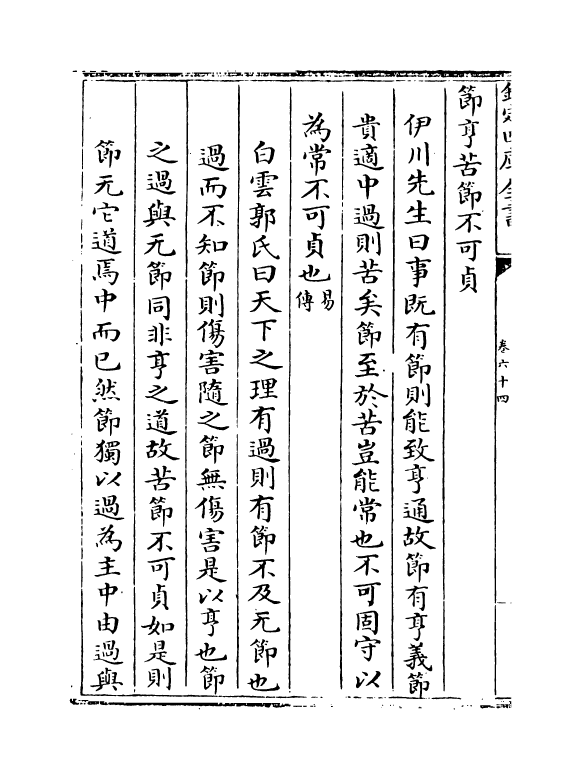 欽定四庫全書
卷六十四
節亨苦節不可貞
伊川先生曰事既有節則能致亨通故節有亨義節
貴適中過則苦矣節至於苦豈能常也不可固守以
為常不可貞也易傳
白雲郭氏曰天下之理有過則有節不及无節也
過而不知節則傷害隨之節無傷害是以亨也節
之過與无節同非亨之道故苦節不可貞如是則
節无它道焉中而已然節獨以過為主中由過與